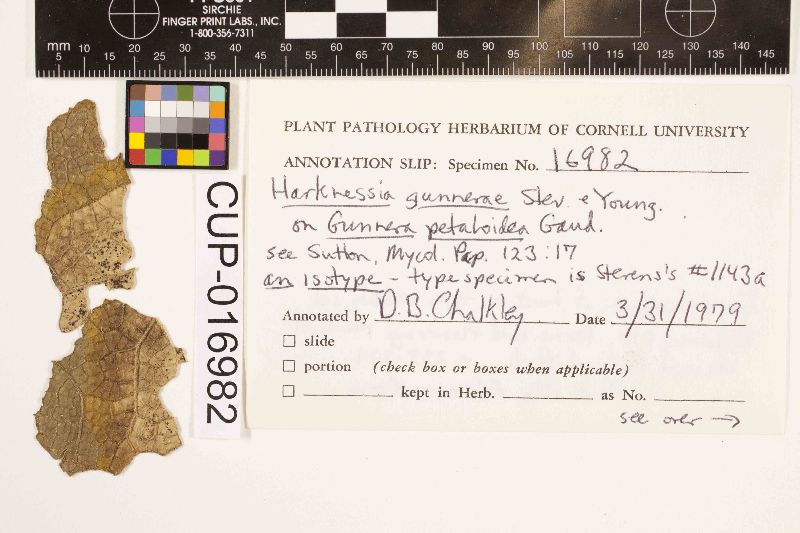 SIRCHIE
FINGER PRINT LABS., INC.
1-800-356-7311
50 100
mm 10 20 30 40 50 60 70 80 90 100 110 120 130 140
5 15 25 35 45 55 65 75 85 95 105 115 125 135 145
CUP-016982
PLANT PATHOLOGY HERBARIUM OF CORNELL UNIVERSITY
ANNOTATION SLIP: Specimen No. 16982
Harknessia gunnerae Stev. & Young.
on Gunnera petaloidea Gaud.
see Sutton, Mycol. Pap. 123:17
an isotype - type specimen is Stevens's #1143a
Annotated by D.B. Chalkley Date 3/31/1979
☐ slide
☐ portion (check box or boxes when applicable)
☐ ____ kept in Herb. ____ as No. ____
see over →